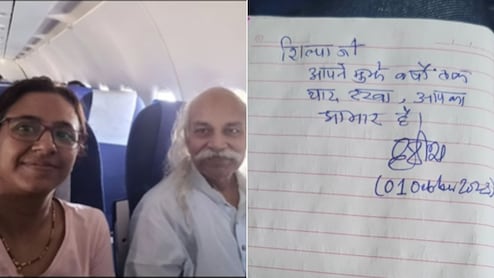 शिल्पा जी
आपने मुझे वर्षों तक
याद रखा, आपका
आभार है।
(01 October 2023)